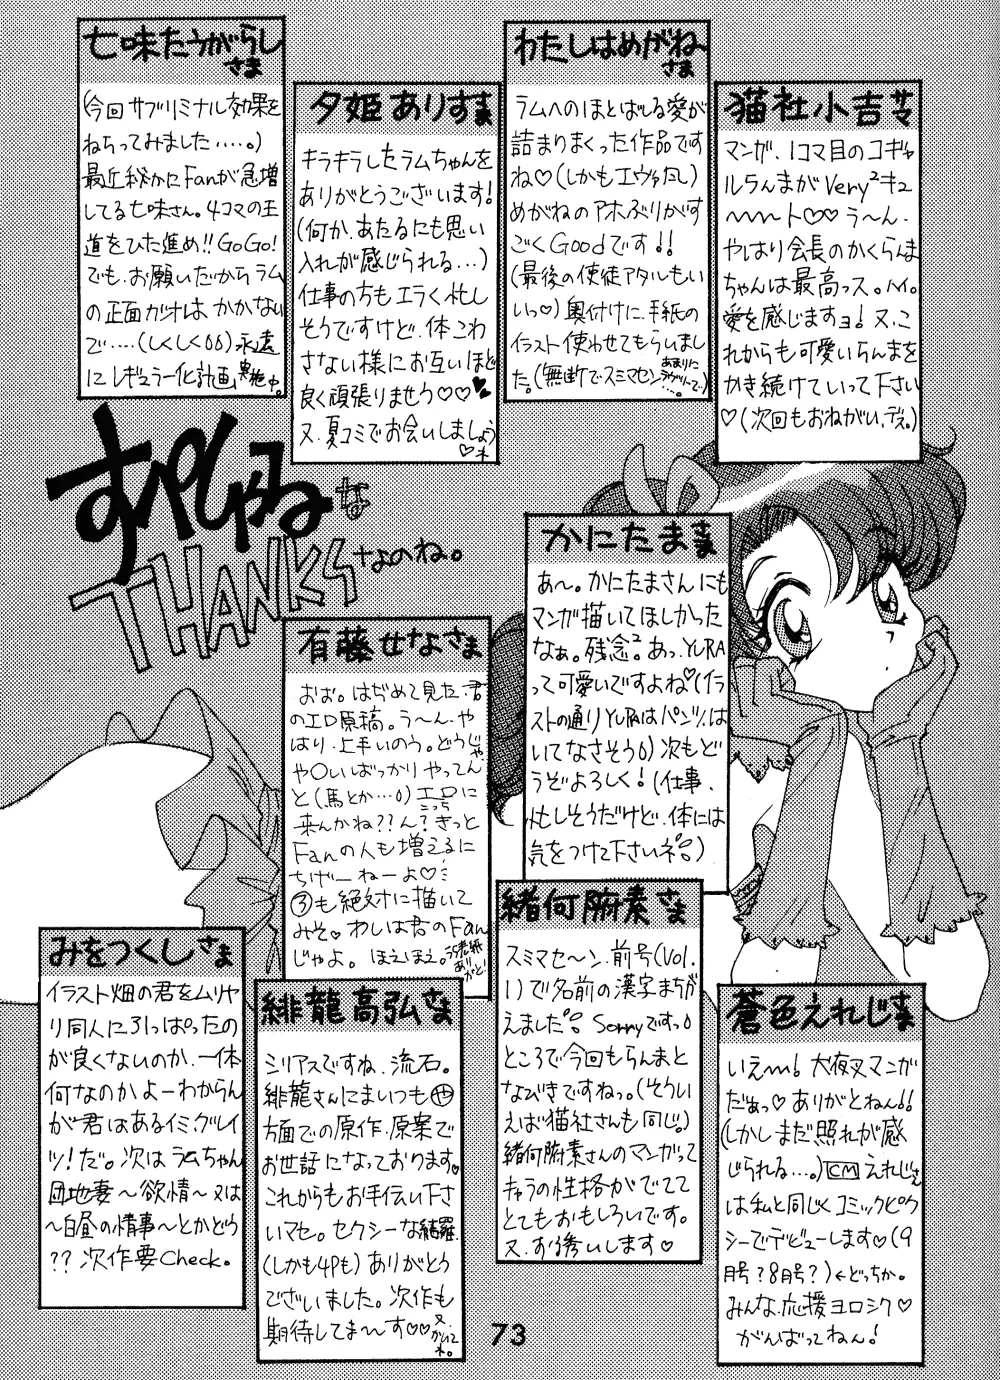 七味たうがらし
さま
(今回サブリミナル効果を
ねらってみました……。)
最近秘かにFanが急増
してる七味さん。4コマの王
道をひた進め!!GoGo!
でも、お願いだからラム
の正面ガオはかかない
で……(しくしく)永遠
にレギュラー化計画実施中。
夕姫ありすさま
キラキラしたラムちゃんを
ありがとうございます!
(何か、あたるにも思い
入れが感じられる…)
仕事の方もエラく忙し
そうですけど、体こわ
さない様にお互いほど
良く頑張りませう♡♡♥
又、夏コミでお会いしましょうネ♡
わたしはめがね
さま
ラムへのほとばしる愛が
詰まりまくった作品です
ね♡(しかもエヴァだし)
めがねのアホぶりがす
ごくGoodです!!
(最後の使徒アタルもい
いっ♡)奥付けに、手紙の
イラスト使わせてもらいまし
た。(無断でスミマセン あまりにラヴリーで…。)
猫社小吉サマ
マンガ、1コマ目のコギャ
ルらんまがVery²キュ
〜〜〜ト♡♡う〜ん、
やはり会長のかくらんま
ちゃんは最高っス。ハイ。
愛を感じますヨ!又、こ
れからも可愛いらんまを
かき続けていって下さい
♡(次回もおねがい、デス。)
すぺしゃるな
THANKSなのね。
かにたまさま
あ〜。かにたまさんにも
マンガ描いてほしかった
なぁ。残念²。あっ、YURA
って可愛いですよね♡(イラ
ストの通りYURAはパンツはは
いてなさそう)次もど
うぞよろしく!(仕事、
忙しそうだけど、体には
気をつけて下さいネ。)
有藤せなさま
おお。はぢめて見た、君
のエロ原稿。う〜ん、や
はり、上手いのう。どうじゃ
や○いばっかりやってん
と(馬とか…)エロに
こっち
来んかね??ん?きっと
Fanの人も増えるに
ちげーねーよ♡
③も絶対に描いて
みそ♡わしは君のFan
じゃよ。ほえほえ。うら表紙ありがと!
緒何腑素さま
スミマセ〜ン、前号(Vol.
1)で名前の漢字まちが
えました。Sorryですっ
ところで今回もらんまと
なびきですねっ。(そうい
えば猫社さんも同じ。)
緒何腑素さんのマンガって
キャラの性格がでてて
とてもおもしろいです。
又、お誘いします♡
みをつくしさま
イラスト畑の君をムリヤ
リ同人に引っぱったの
が良くないのか、一体
何なのかよーわからん
が君はあるイミ、グレイ
ツ!だ。次はラムちゃん
団地妻〜欲情〜又は
〜白昼の情事〜とかどう
??次作要Check。
緋龍高弘さま
シリアスですね、流石。
緋龍さんにまいつも㊥
方面での原作、原案で
お世話になっております。
これからもお手伝い下さ
いマセ。セクシーな綺羅、
(しかも4Pも)ありがとう
ございました。次作も
期待してま〜す♡♡又、かいてネ。
蒼色えれじさま
いえ〜〜!犬夜叉マンガ
だぁっ♡ありがとねん!!
(しかしまだ照れが感
じられる…。)CMえれじさん
は私と同じくコミックピク
シーでデビューします♡(9
月号?8月号?)←どっちか。
みんな、応援ヨロシク♡
がんばってねん!
73